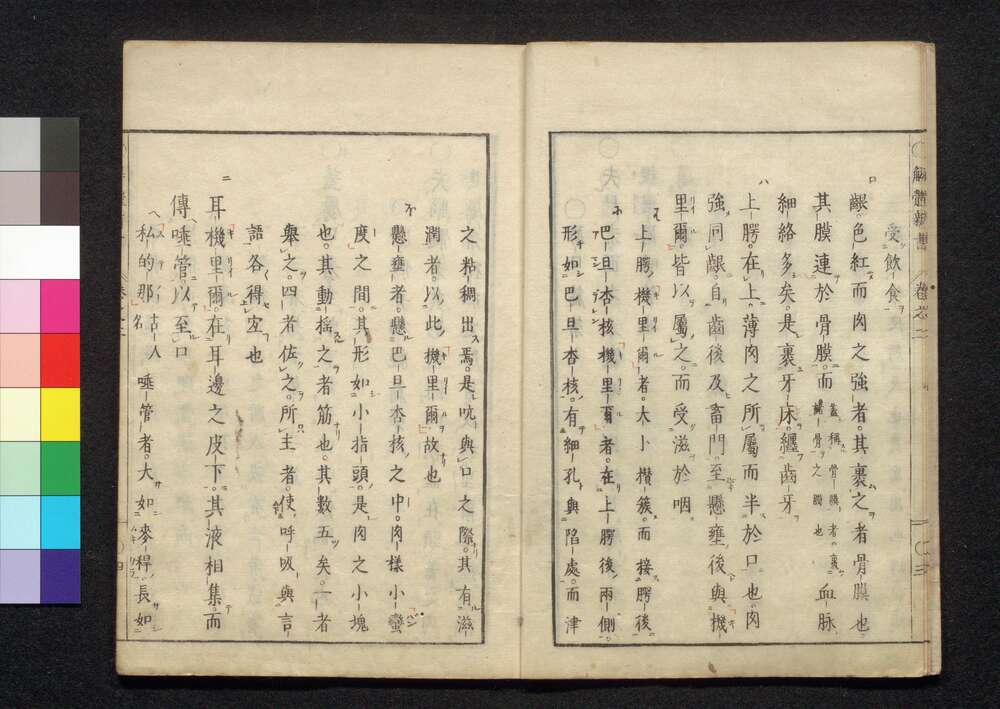 解體新書 卷之二
受飲食
齦色紅而肉之強者其裹之者骨膜也
其膜連於骨膜而蓋稱骨膜者裹諸骨之膜也血脉
細絡多矣是裹牙床纏齒牙
ハ
上腭在上薄肉之所屬而半於口也肉
強同齦自齒後及畜門至懸壅後與機
里爾皆以屬之而受滋於咽
上腭機里爾者大小攢簇而接腭後
巴旦杏核機里爾者在上腭後兩側
形如巴旦杏核有細孔與陷處而津
三
之粘稠出焉是吭與口之際其有滋
潤者以此機里爾故也
懸壅者懸巴旦杏核之中肉樣小蠻
度之間其形如小指頭是肉之小塊
也其動搖之者筋也其數五矣一者
舉之四者佐之所主者使呼吸與言
語各得宜也
ニ
耳機里爾在耳邊之皮下其液相集而
傳唾管以至口
私的那古人名唾管者大如麥稈長如
四